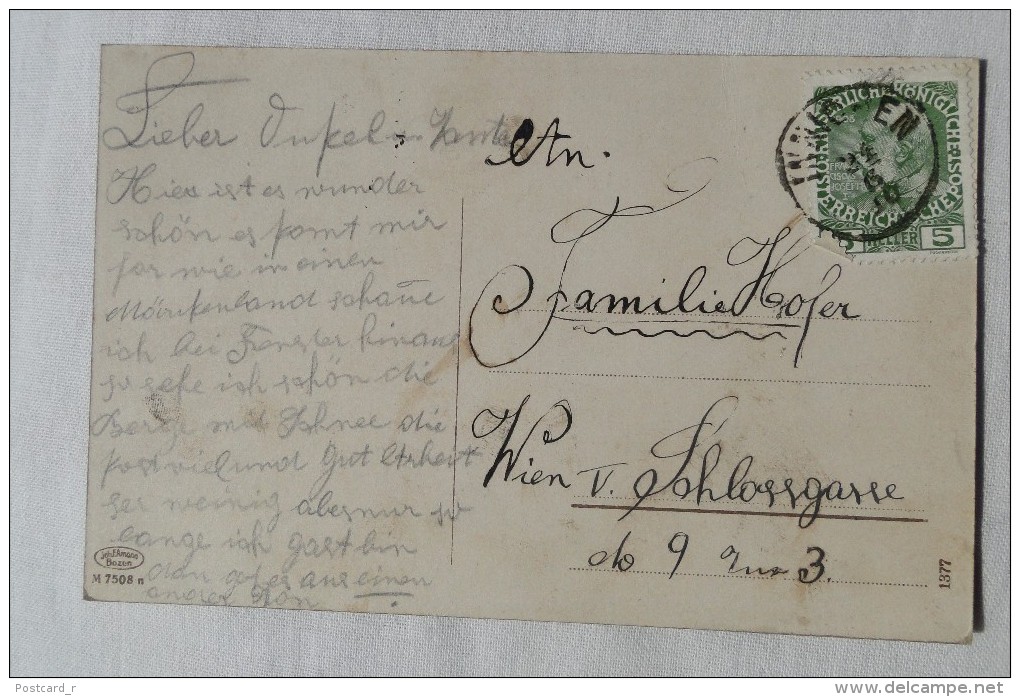 Lieber Onkel u. Tante
Hier ist es wunder
schön es komt mir
for wie in einen
Märchenland schaue
ich bei Fenster hinaus
so sehe ich schön die
Berge mit Schnee die
post viel und gut Arbeit
ser weinig aber nur so
lange ich gast bin
dan get es aus einen
andren ton
An.
Familie Hofer
Wien V. Schlossgasse
No 9 3.
KAISERLICHE KÖNIGLICHE
ÖSTERREICHISCHE POST
FRANZ JOSEF I
5 HELLER 5
Joh. F. Amonn
Bozen
M 7508 n
1377
Postcard_r
www.delcampe.net